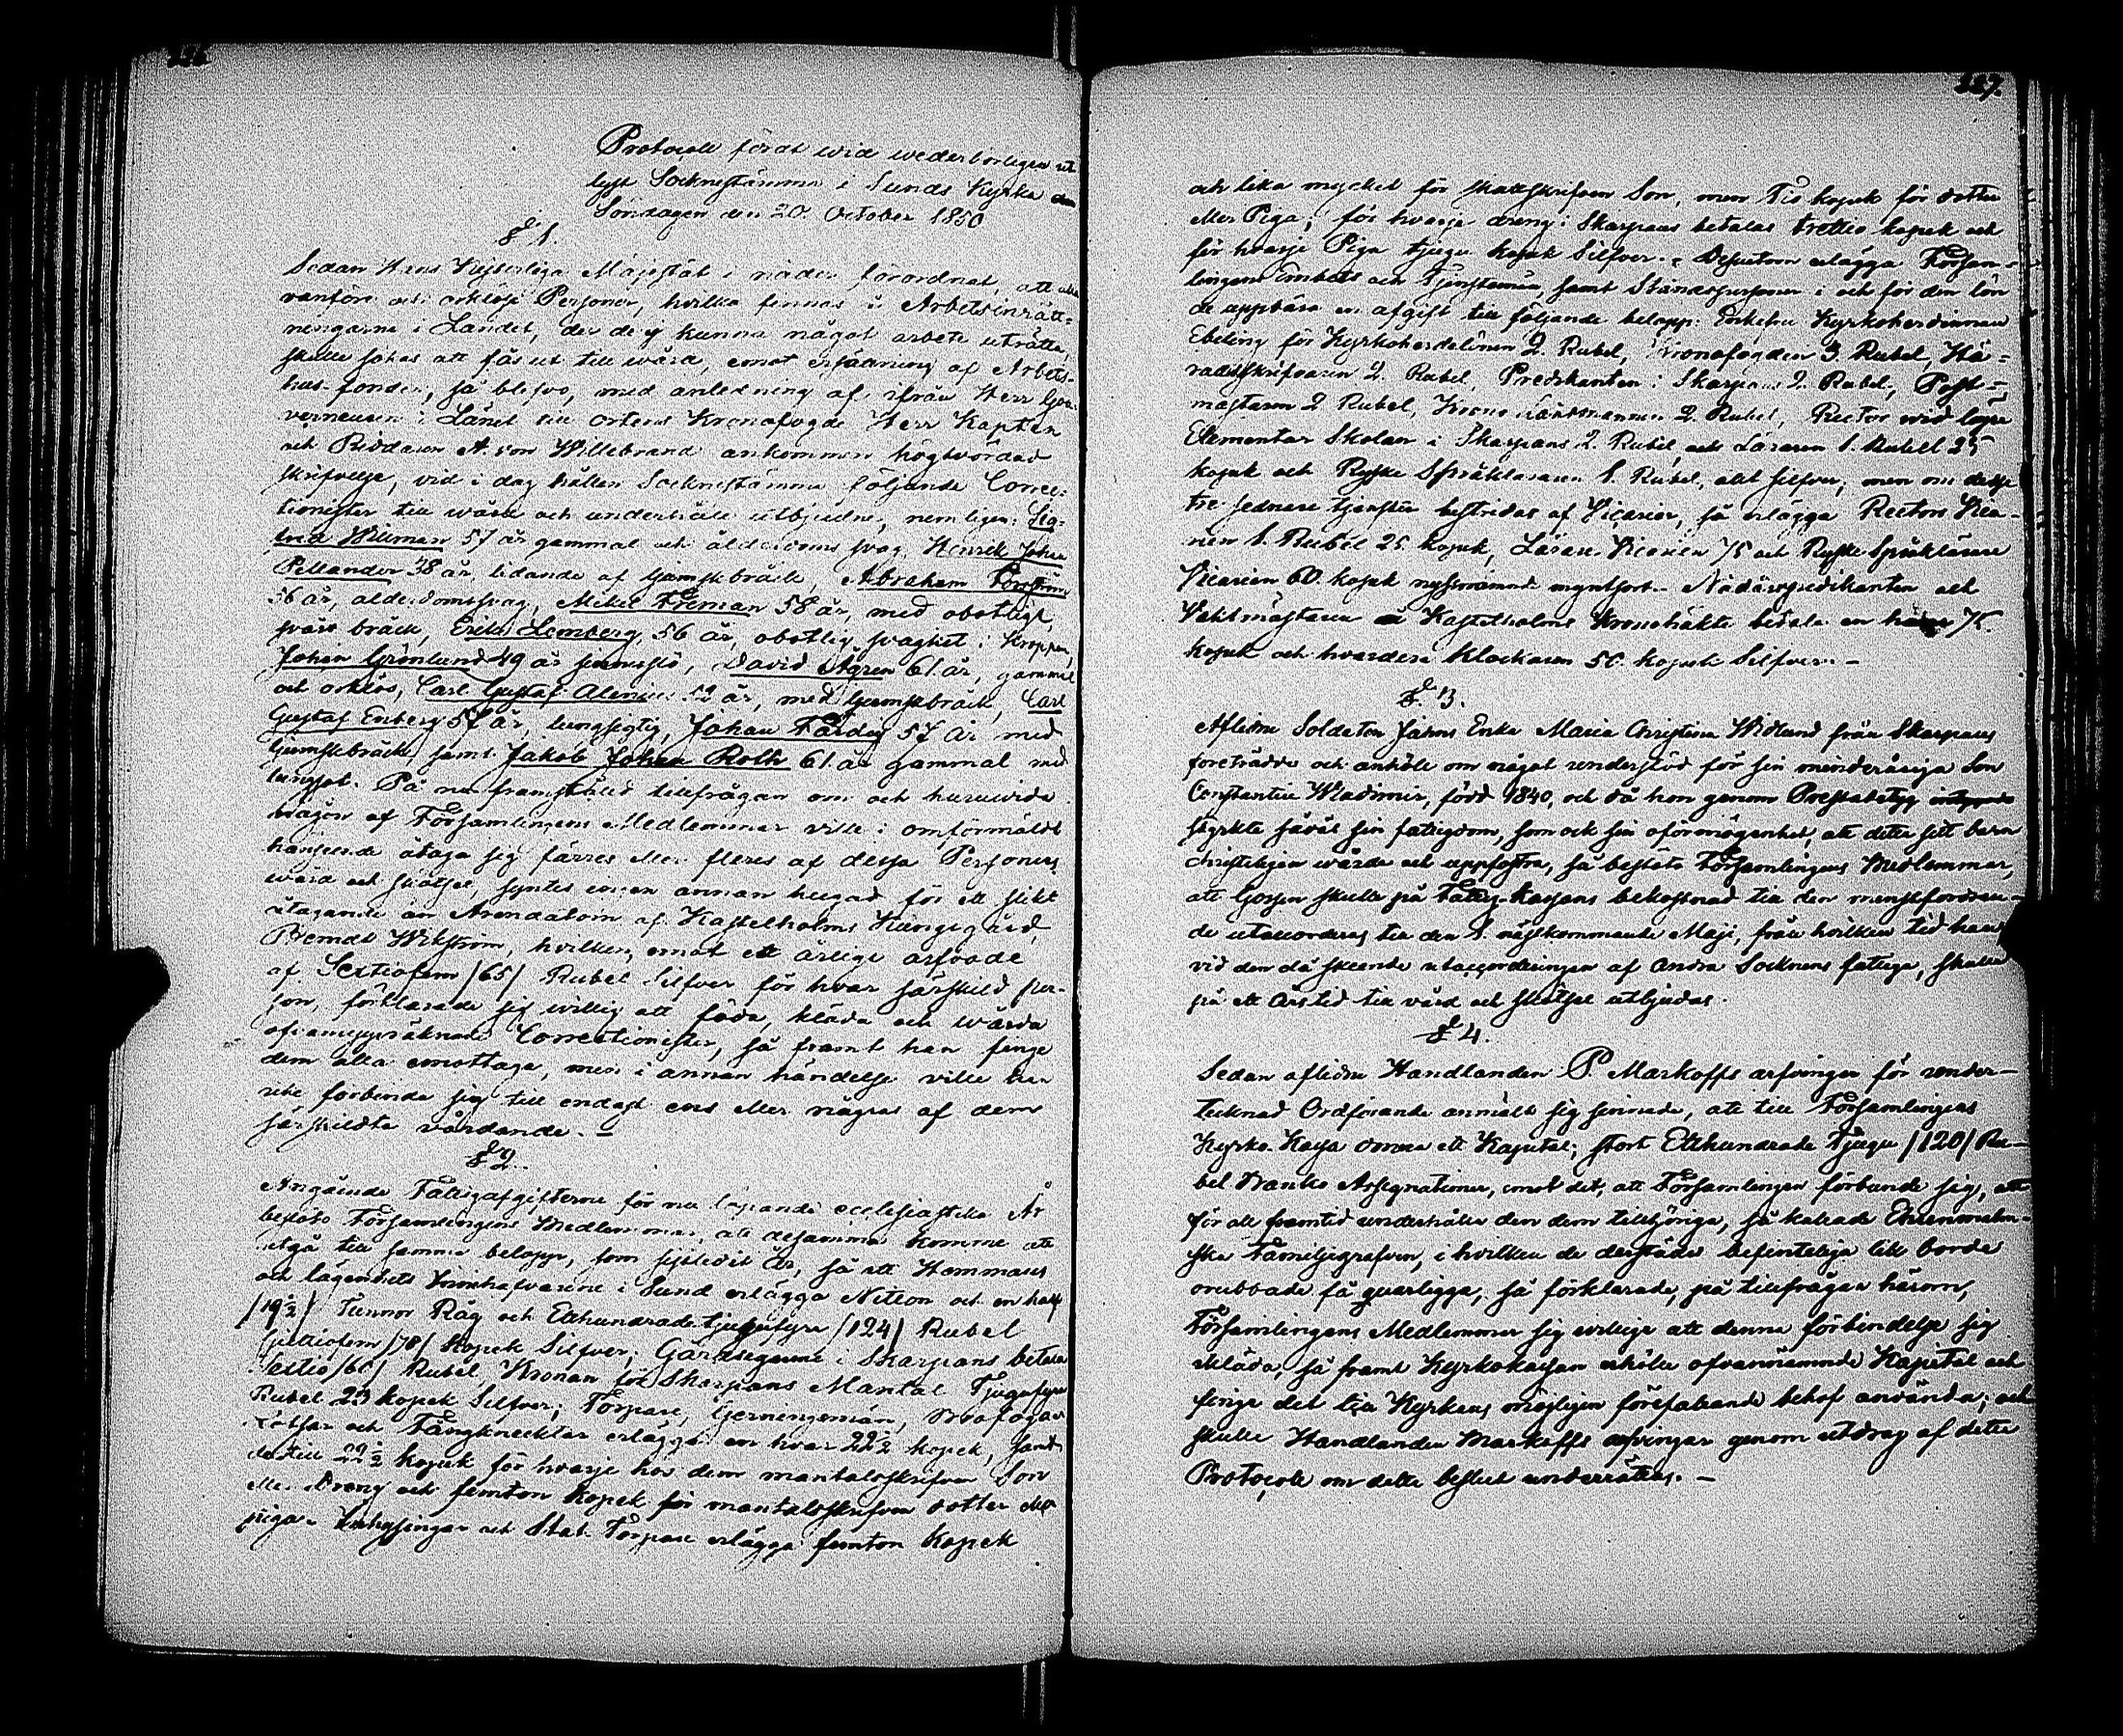 Protocoll fördt wid wederbörligen ut-
lyst Socknestämma i Sunds Kyrka
Söndagen den 20 October 1850
§ 1.
Sedan Hans Kejserliga Majestät i nåder förordnat, att alla
vanföre och orklöse Personer, hvilka finnas i Arbetsinrätt=
ningarne i Landet, der de ej kunna något arbete uträtta,
skulle sökas att fås ut till wård, emot ersättning af Arbets-
hus-fonden, så blefvo, med anledning af ifrån Herr Gou-
verneuren i Länet till ortens Kronofogde Herr Kapten
och Riddaren A. von Willebrand ankommen högtvördad
skrifvelse, vid i dag hållen Socknestämma följande Correc-
tionister till wård och underhåll utbjudne, nemligen: Sig-
frid Willman 57 år gammal och ålderdoms svag, Henrik Johan
Pellander 38 år, lidande af ljumskbråck, Abraham
56 år, ålderdomssvag, Mikel Friman 58 år, med obotligt
svårt bråck, Erik Lemberg, 56 år, obotlig svaghet i Kroppen,
Johan Grönlund 49 år sinnesslö, David Ågren 61 år, gammal
och orklös, Carl Gustaf Alenius 52 år, med ljumskbråck, Carl
Gustaf Enberg 57 år, lungsigtig, Johan Färdig 57 år med
ljumskbråck, samt Jakob Johan Roth 61 år gammal med
lungsot. På nu framstäld tillfrågan om och huruvida
någon af Församlingens Medlemmar ville i omförmäldt
hänseende åtaga sig färres eller fleres af dessa Personers
wård och skötsel, syntes ingen annan hugad för ett slikt
åtagande än Arendatorn af Kastelholms Kungsgård,
Berndt Wikström, hvilken, emot ett årligt arfvode
af Sextiofem /65/ Rubel Silfver för hvar särskild per-
son, förklarade sig willig att föda, kläda och wårda
ofvanuppräknade Correctionister, så framt han finge
dem alla emottaga, men i annan händelse ville han
icke förbinda sig till endast ens eller någras af dem
särskildta vårdande. —
§ 2.
Angående Fattigafgifterne för nu löpande ecclesiastika År
beslöto Församlingens Medlemmar, att desamma komme att
utgå till samma belopp, som sistledit år, så att Hemmans
och lägenhets innehafvarene i Sund erlägga Nitton och en half
/19½/ Tunnor Råg och Etthundrade tjugufyra /124/ Rubel
Sjuttioåtta /78/ Kopek Silfver; Gårdsegarne i Skarpans betala
Sextio /60/ Rubel, Kronan för Skarpans Mantal Tjugufyra
Rubel 23 kopek Silfver; Torpare, Gerningsmän,
Lotsar och Fångknecktar erlägga en hvar 22½ kopek, samt
dertill 22½ kopek för hvarje hos dem mantalsskrifven Son
eller Dreng och femton kopek för mantalsskrifven dotter eller
piga. Inhysingar och Stat-Torpare erlägga femton Kopek
127.
och lika mycket för skattskrifven Son, men Tio kopek för dotter
eller Piga; för hvarje dreng i Skarpans betalas trettio kopek och
för hvarje Piga tjugu kopek Silfver. Dessutom erlägga Försam-
lingens Embets och Tjenstemän, samt Ståndspersoner i och för den lön
de uppbära en afgift till följande belopp: Enkefru Kyrkoherdinnan
Ebeling för Kyrkoherdelönen 2 Rubel, Kronofogden 3 Rubel, Hä-
radsskrifvaren 2 Rubel, Predikanten i Skarpans 2 Rubel, Post-
mästaren 2 Rubel, Krono Länsmannen 2 Rubel, Rector wid lägre
Elementar Skolan i Skarpans 2 Rubel, och Läraren 1 Rubel 25
kopek och Ryske Språkläraren 1 Rubel, allt silfver; men om desse
tre sednare tjenster bestridas af Vicarier, så erlägga Rectors Vica-
rien 1 Rubel 25 kopek, Lärare Vicarien 75 och Ryske Språklärare
Vicarien 60 kopek nyssnämnd myntsort. Nådårspredikanten och
Vaktmästaren å Kastelholms Kronohäkte betala en hvar 75
kopek och hvardera Klockaren 50 kopek Silfver. —
§ 3.
Aflidne Soldaten Jahns Enka Maria Christina Widlund från Skarpans
företrädde och anhöll om något understöd för sin minderåriga Son
Constantin Wladimir, född 1840, och då hon genom Prestabetyg
styrkte såväl sin fattigdom, som ock sin oförmögenhet, att detta sitt barn
christeligen wårda och uppfostra, så beslöto Församlingens Medlemmar,
att Gossen skulle på Fattig-Kassans bekostnad till den minstfordran-
de utaccorderas till den 1 nästkommande Maji, från hvilken tid han
vid den då skeende utaccorderingen af andra Socknens fattige, skulle
på ett Års tid till vård och skötsel utbjudas.
§ 4.
Sedan aflidne Handlanden P. Markoffs arfvingar för under-
tecknad Ordförande anmält sig sinnade, att till Församlingens
Kyrko-Kassa donera ett Kapital, stort Etthundrade Tjugu /120/ Ru-
bel Banko Assignationer, emot det, att Församlingen förbunde sig, att
för all framtid underhålla den dem tillhöriga, så kallade Ehrenmalm-
ska Familjegrafven, i hvilken de derstädes befinteliga lik borde
orubbade få qvarligga, så förklarade, på tillfrågan härom,
Församlingens Medlemmar sig willige att denna förbindelse sig
ikläda, så framt Kyrkokassan erhölle ofvannämnde Kapital och
finge det till Kyrkans möjligen förefallande behof använda; och
skulle Handlanden Markoffs arfvingar genom utdrag af detta
Protocoll om detta beslut underrättas. —